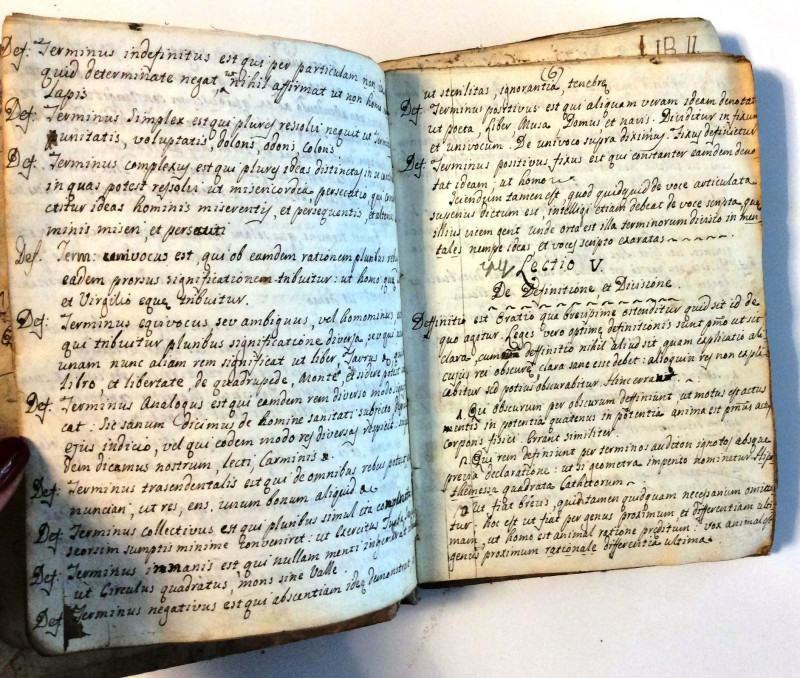 Def: Terminus indefinitus est qui per particulam non
quid determinate negat ut nihil affirmat ut non homo
lapis
Def: Terminus Simplex est qui plures ressolvi nequit ut
unitatis, voluptatis, doloris, odoris, coloris
Def. Terminus complexus est qui plures ideas distinctas in se
in quas potest ressolvi ut misericordia, persecutio, que
ctitur ideas hominis miserentis, et persequentis, et
minis miseri, et persecuti
Def. Term: univocus est, qui ob eamdem rationem pluribus
eadem prorsus significatione tribuitur: ut homo que
et Virgilio eque tribuitur.
Def: Terminus equivocus seu ambiguus, vel homonimus
qui tribuitur pluribus significatione diversa, seu qui
unam nunc aliam rem significat ut liber, Taurus,
libro, et libertate, de quadrupede, Monte, et sidere
Def: Terminus Analogus est qui eamdem rem diverso modo
cat: Sic sanum dicimus de homine sanitati subjecto
ejus indicio, vel qui eodem modo res diversas
dem dicamus nostrum, lecti, Carminis
Def: Terminus trasendentalis est qui de omnibus rebus potest
nunciari, ut res, ens, unum bonum aliquid
Def: Terminus collectivus est qui pluribus simul
seorsim sumptis minime conveniret: ut exercitus
Def: Terminus inmanis est qui nullam menti
ut Circulus quadratus, mons sine Valle.
Def: Terminus negativus est qui absentiam idee demonstrat
LIB II
(6)
ut sterilitas, ignorantia, tenebre
Def: Terminus positivus est qui aliquam veram ideam denotat
ut poeta, liber, Musa, Domus et navis. Dividitur in fixum
et univocum. De univoco supra diximus. Fixus definitur
Def: Terminus positivus fixus est qui constanter eamdem deno
tat ideam, ut homo
Sciendum tamen est, quod quidquid de voce articulata
superius dictum est, intelligi etiam debeat de voce scripta, que
illius vicem gerit unde orta est illa terminorum divisio in men
tales nempe ideas, et voces scripto exaratas
Lectio V.
De Definitione et Divisione.
Deffinitio est Oratio que brevisime ostenditur quid sit id de
quo agitur. Leges vero optime definitionis sunt pmo ut sit
clara, cum deffinitio nihil aliud sit quam explicatio ali
cujus rei obscure, clara sane esse debet: alioquin res non expli
cabitur sed potius obscurabitur. Hinc errant
1. Qui obscurum per obscurum definiunt, ut motus est actus
entis in potentia quatenus in potentia anima est pmus actus
corporis fisici. Errant similiter.
2. Qui rem definiunt per terminos auditori ignotos absque
previa declaratione: ut si geometra imperito nominet
quadrata Cathetorum
ut fiat brevis, quin tamen quidquam necesarium omitta
tur: hoc est ut fiat per genus proximum et differentiam ulti
mam, ut homo est animal ratione preditum: vox animal est
genus proximum rationale differentia ultima.